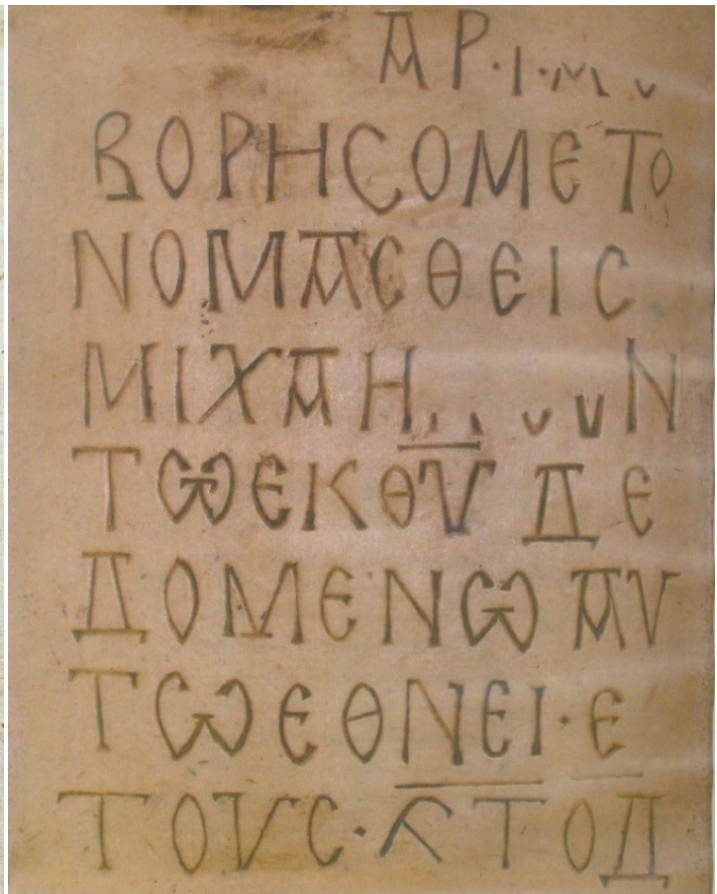 ΑΡ·Ι·
ΒΟΡΗCΟΜΕΤΟ
ΝΟΜΑCΘΕΙC
ΜΙΧΑΗ...ΥΝ
ΤѠΕΚΘ̅Υ̅ΔΕ
ΔΟΜΕΝѠΑΥ
ΤѠΕΘΝΕΙ·Ε
ΤΟΥC·ϚΤΟΔ